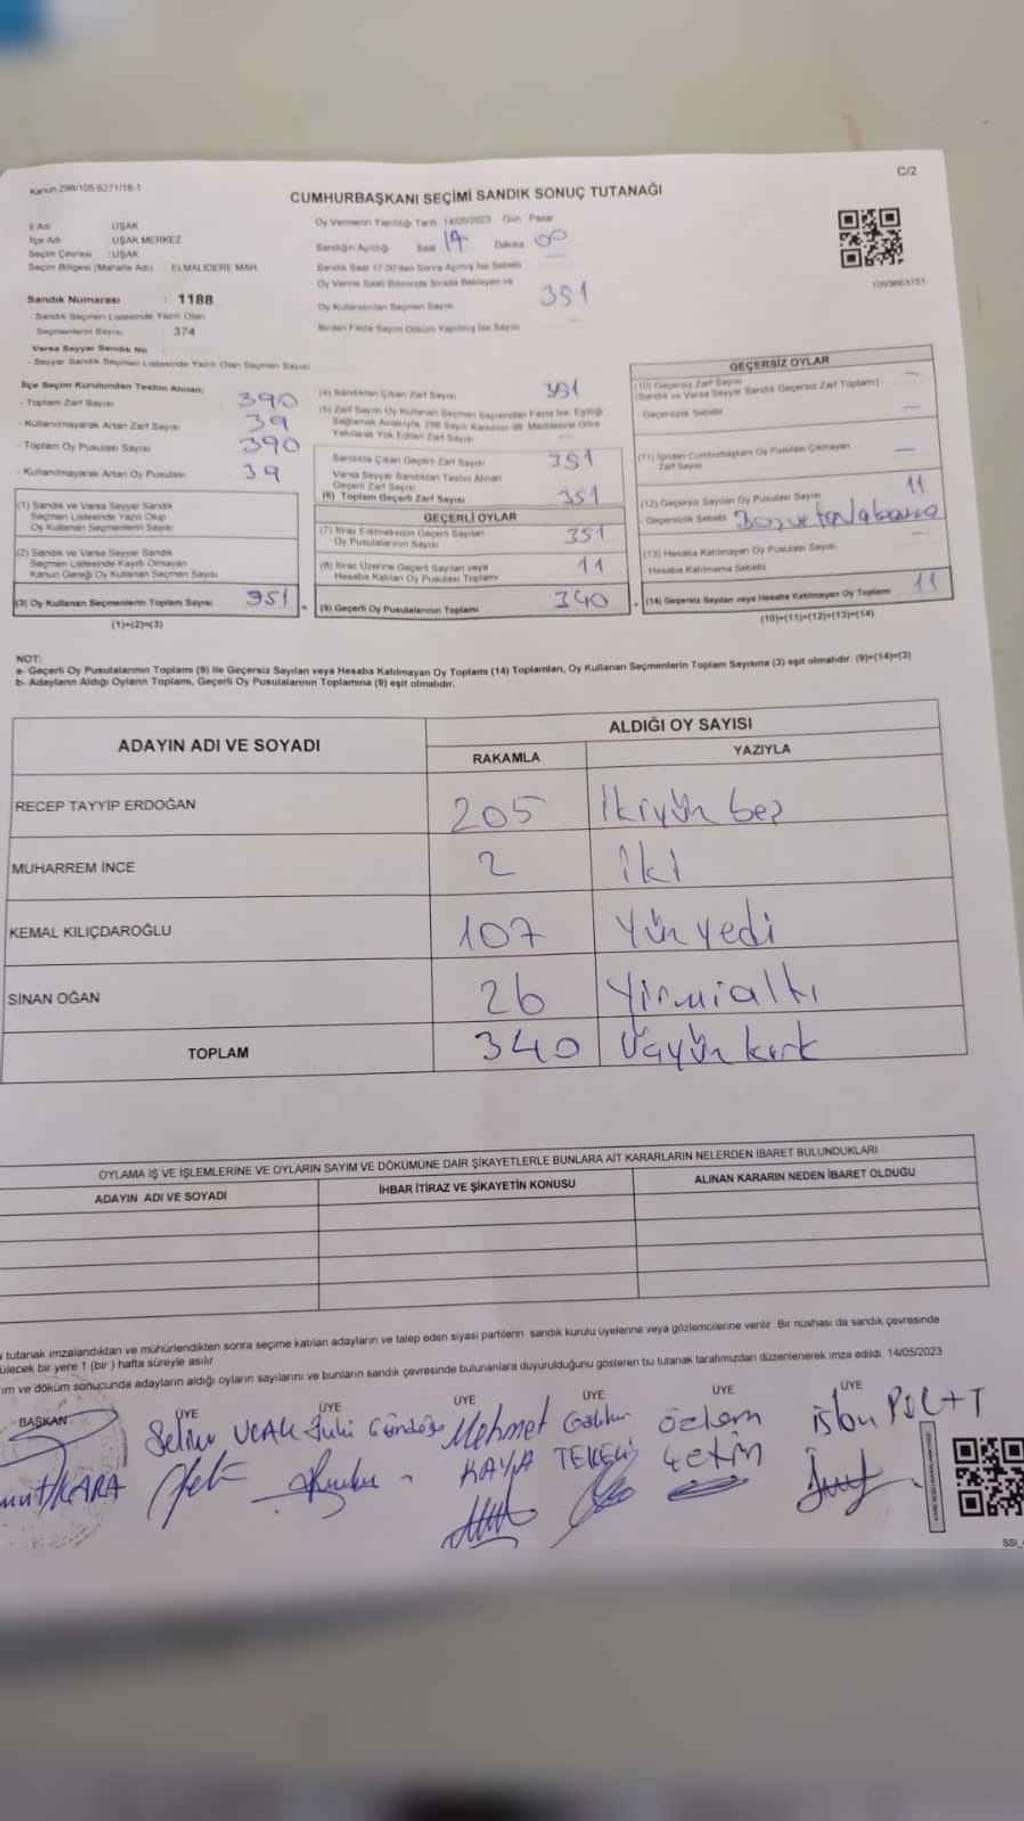 Kanun 298/105-6271/16-1
C/2
CUMHURBAŞKANI SEÇİMİ SANDIK SONUÇ TUTANAĞI
İl Adı : UŞAK
İlçe Adı : UŞAK MERKEZ
Seçim Çevresi : UŞAK
Seçim Bölgesi (Mahalle Adı) : ELMALIDERE MAH
Sandık Numarası : 1188
- Sandık Seçmen Listesinde Yazılı Olan
Seçmenlerin Sayısı : 374
Varsa Seyyar Sandık No
- Seyyar Sandık Seçmen Listesinde Yazılı Olan Seçmen Sayısı
Oy Vermenin Yapıldığı Tarih 14/05/2023 Gün Pazar
Sandığın Açıldığı Saat 17 Dakika 00
Oy Kullanılan Seçmen Sayısı 351
Birden Fazla Sayım Döküm Yapılmış İse Sayısı
İlçe Seçim Kurulundan Teslim Alınan;
- Toplam Zarf Sayısı 390
- Kullanılmayarak Artan Zarf Sayısı 39
- Toplam Oy Pusulası Sayısı 390
- Kullanılmayarak Artan Oy Pusulası 39
(1) Sandık ve Varsa Seyyar Sandık
Seçmen Listesinde Yazılı Olup
Oy Kullanan Seçmenlerin Sayısı
(2) Sandık ve Varsa Seyyar Sandık
Seçmen Listesinde Kayıtlı Olmayan
Kanun Gereği Oy Kullanan Seçmen Sayısı
(3) Oy Kullanan Seçmenlerin Toplam Sayısı 351
(1)+(2)=(3)
(4) Sandıktan Çıkan Zarf Sayısı 351
Sandıkta Çıkan Geçerli Zarf Sayısı 351
Varsa Seyyar Sandıktan Teslim Alınan
Geçerli Zarf Sayısı
(6) Toplam Geçerli Zarf Sayısı 351
GEÇERLİ OYLAR
(7) İtiraz Edilmeksizin Geçerli Sayılan
Oy Pusulalarının Sayısı 351
(8) İtiraz Üzerine Geçerli Sayılan veya
Hesaba Katılan Oy Pusulası Toplamı 11
(9) Geçerli Oy Pusulalarının Toplamı 340
GEÇERSİZ OYLAR
(10) Geçersiz Zarf Sayısı
(Sandık ve Varsa Seyyar Sandık Geçersiz Zarf Toplamı)
Geçersizlik Sebebi
(11) İçinden Cumhurbaşkanı Oy Pusulası Çıkmayan
Zarf Sayısı
(12) Geçersiz Sayılan Oy Pusulası Sayısı 11
Geçersizlik Sebebi
(13) Hesaba Katılmayan Oy Pusulası Sayısı
Hesaba Katılmama Sebebi
(14) Geçersiz Sayılan veya Hesaba Katılmayan Oy Toplamı 11
(10)+(11)+(12)+(13)=(14)
NOT:
a- Geçerli Oy Pusulalarının Toplamı (9) ile Geçersiz Sayılan veya Hesaba Katılmayan Oy Toplamı (14) Toplamları, Oy Kullanan Seçmenlerin Toplam Sayısına (3) eşit olmalıdır. (9)+(14)=(3)
b- Adayların Aldığı Oyların Toplamı, Geçerli Oy Pusulalarının Toplamına (9) eşit olmalıdır.
ADAYIN ADI VE SOYADI
ALDIĞI OY SAYISI
RAKAMLA YAZIYLA
RECEP TAYYİP ERDOĞAN 205 İkiyüz beş
MUHARREM İNCE 2 iki
KEMAL KILIÇDAROĞLU 107 Yüz yedi
SİNAN OĞAN 26 Yirmialtı
TOPLAM 340 Üçyüz kırk
OYLAMA İŞ VE İŞLEMLERİNE VE OYLARIN SAYIM VE DÖKÜMÜNE DAİR ŞİKAYETLERLE BUNLARA AİT KARARLARIN NELERDEN İBARET BULUNDUKLARI
ADAYIN ADI VE SOYADI İHBAR İTİRAZ VE ŞİKAYETİN KONUSU ALINAN KARARIN NEDEN İBARET OLDUĞU
tutanak imzalandıktan ve mühürlendikten sonra seçime katılan adayların ve talep eden siyasi partilerin sandık kurulu üyelerine veya gözlemcilerine verilir. Bir nüshası da sandık çevresinde
bir yere 1 (bir) hafta süreyle asılır
ve döküm sonucunda adayların aldığı oyların sayılarını ve bunların sandık çevresinde bulunanlara duyurulduğunu gösteren bu tutanak tarafımızdan düzenlenerek imza edildi. 14/05/2023
BAŞKAN ÜYE ÜYE ÜYE ÜYE ÜYE ÜYE
KARA Selim UÇAK Mehmet KAYA TEKELİ Özlem Çetin